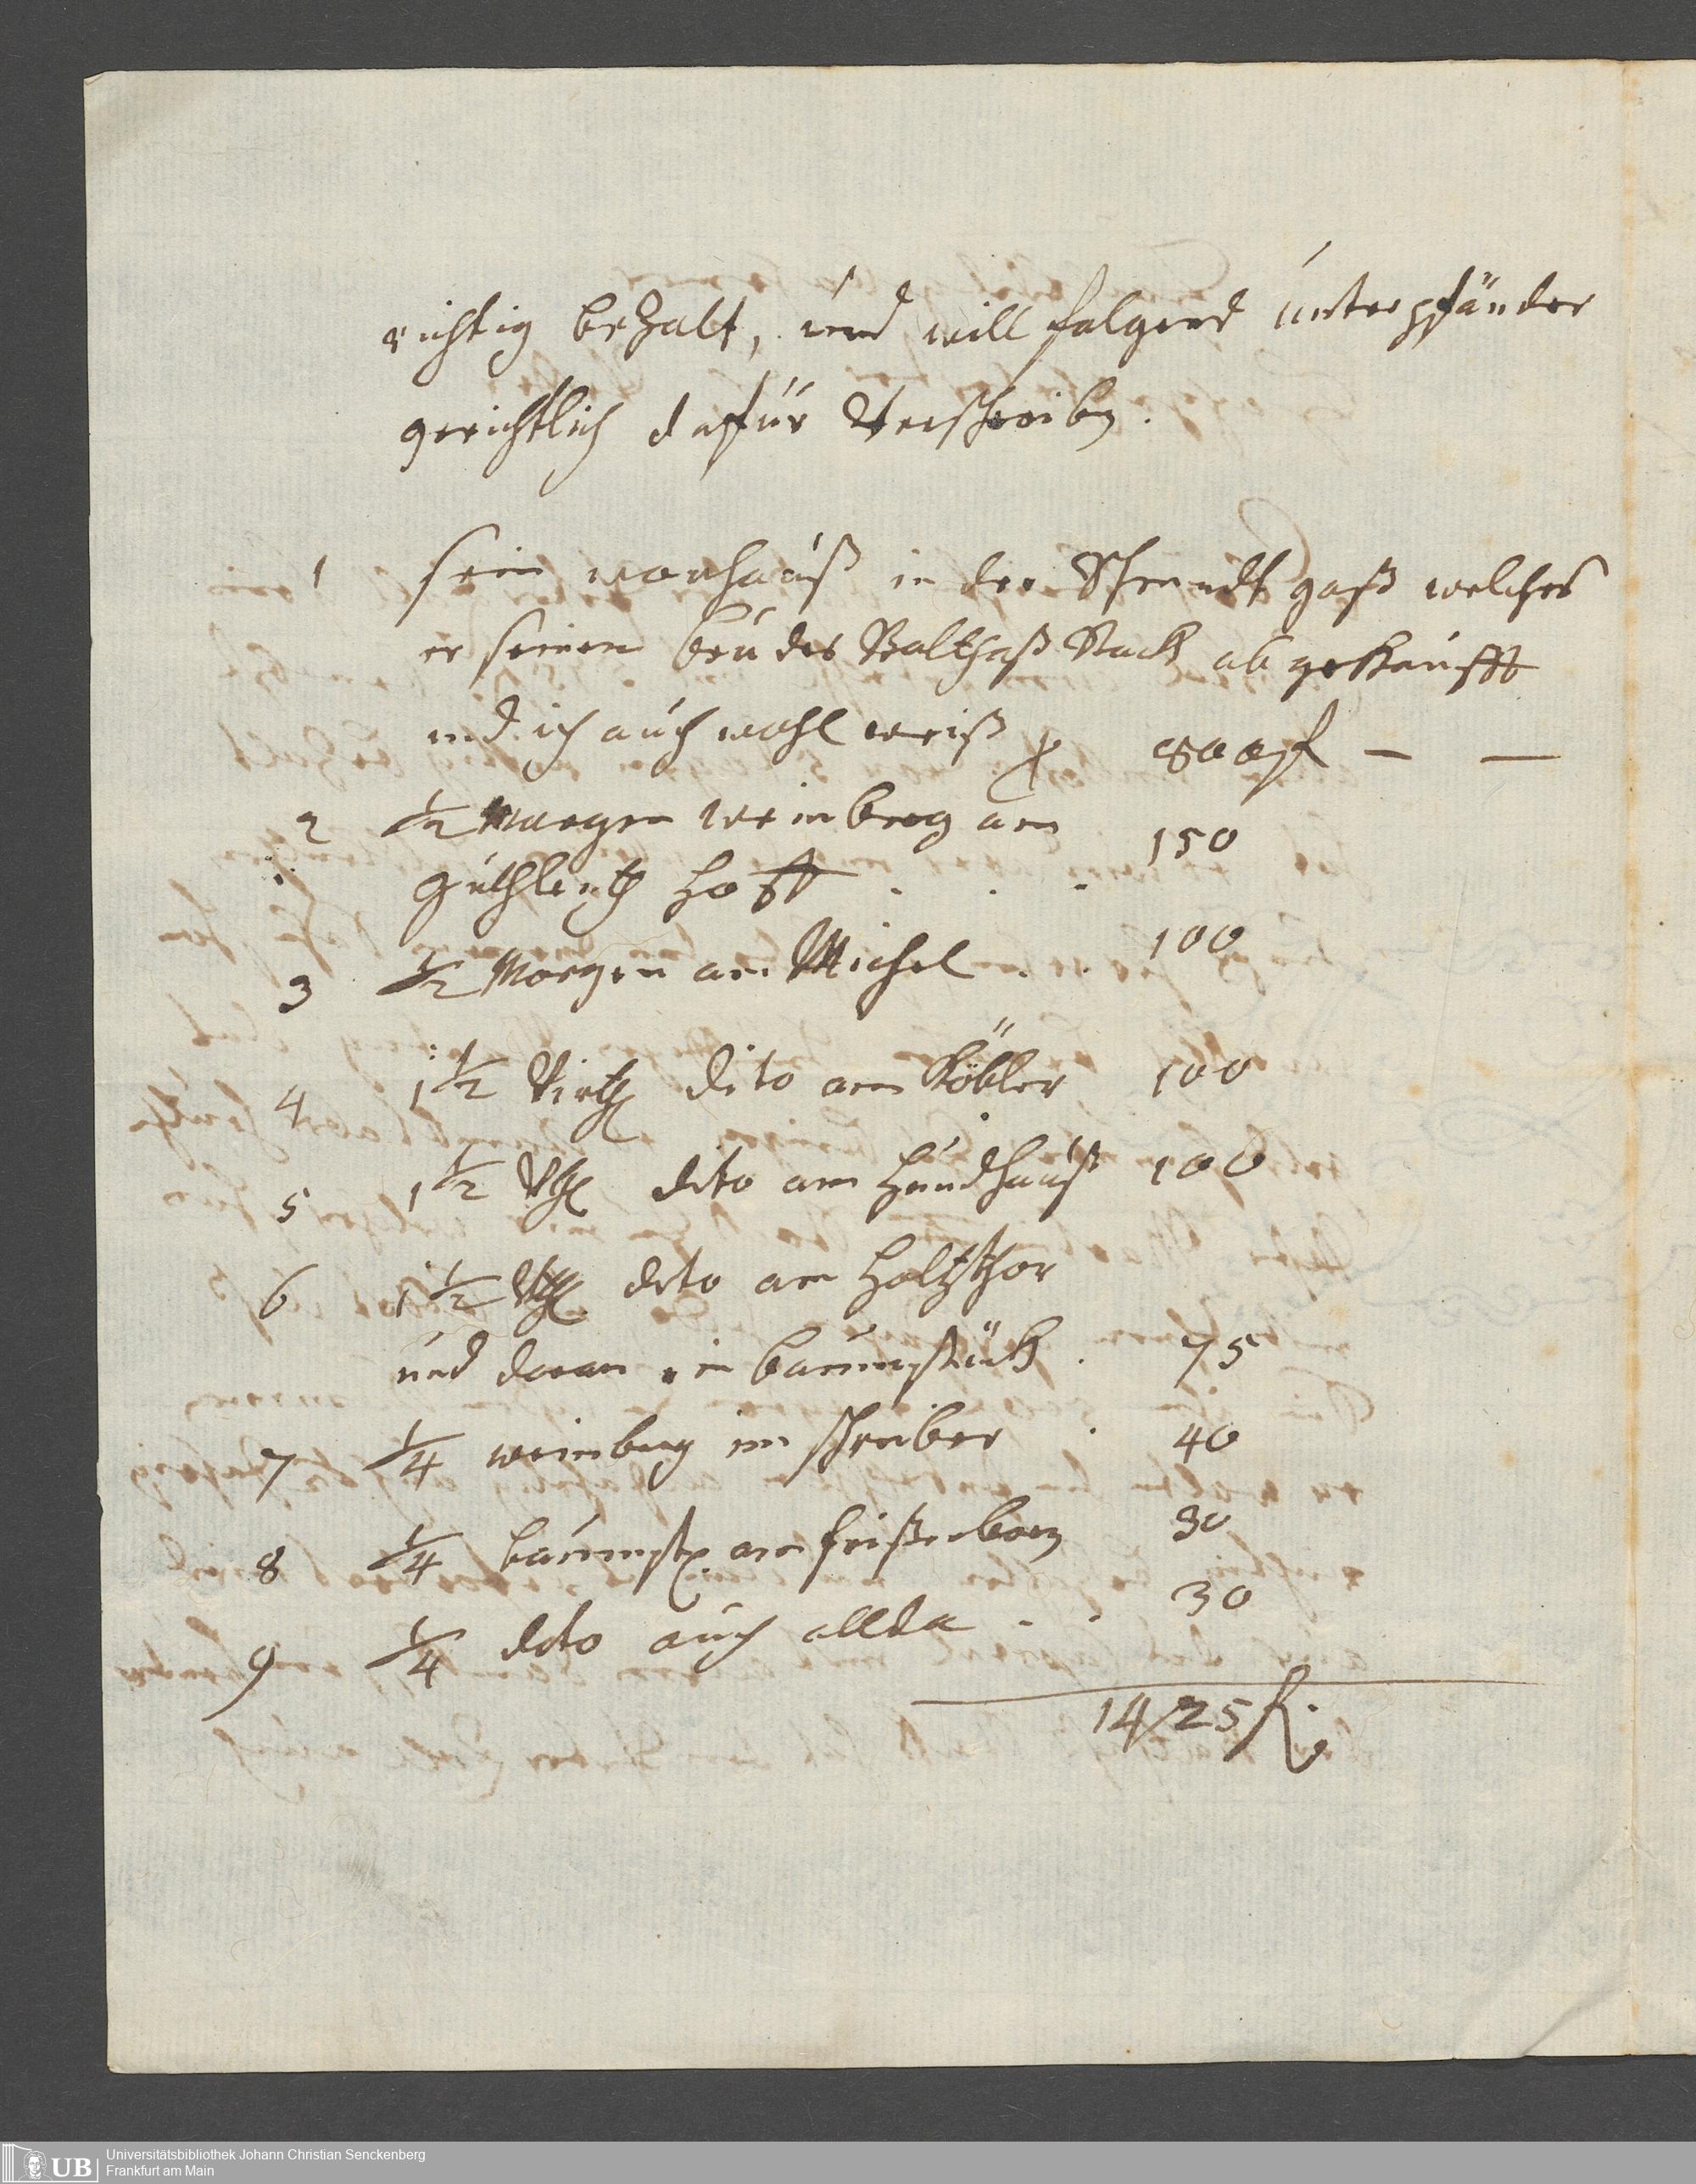 richtig bezalt, und will folgend unterpfänder
gerichtlich dafür Verschreiben.
1 sein wonhauß in der gaß welches
er seinem bruder Balthaß Stack abgekaufft
und ich auch wohl weiß p 800 fl — —
2 1/2 Morgen weinberg am 150
guthleutz Hofft . . .
3 1/2 Morgen am Michel . . 100
4 1 1/2 Virtl dito am Köbler 100
5 1 1/2 Vtl dito am Hundhauß 100
6 1 1/2 Vtl dito am Holtzthor
und daran ein baumstück . 75
7 1/4 weinberg im schreiber . 40
8 1/4 baumst. am 30
9 1/4 dito auch allda . . 30
1425 fl.
UB Universitätsbibliothek Johann Christian Senckenberg
Frankfurt am Main